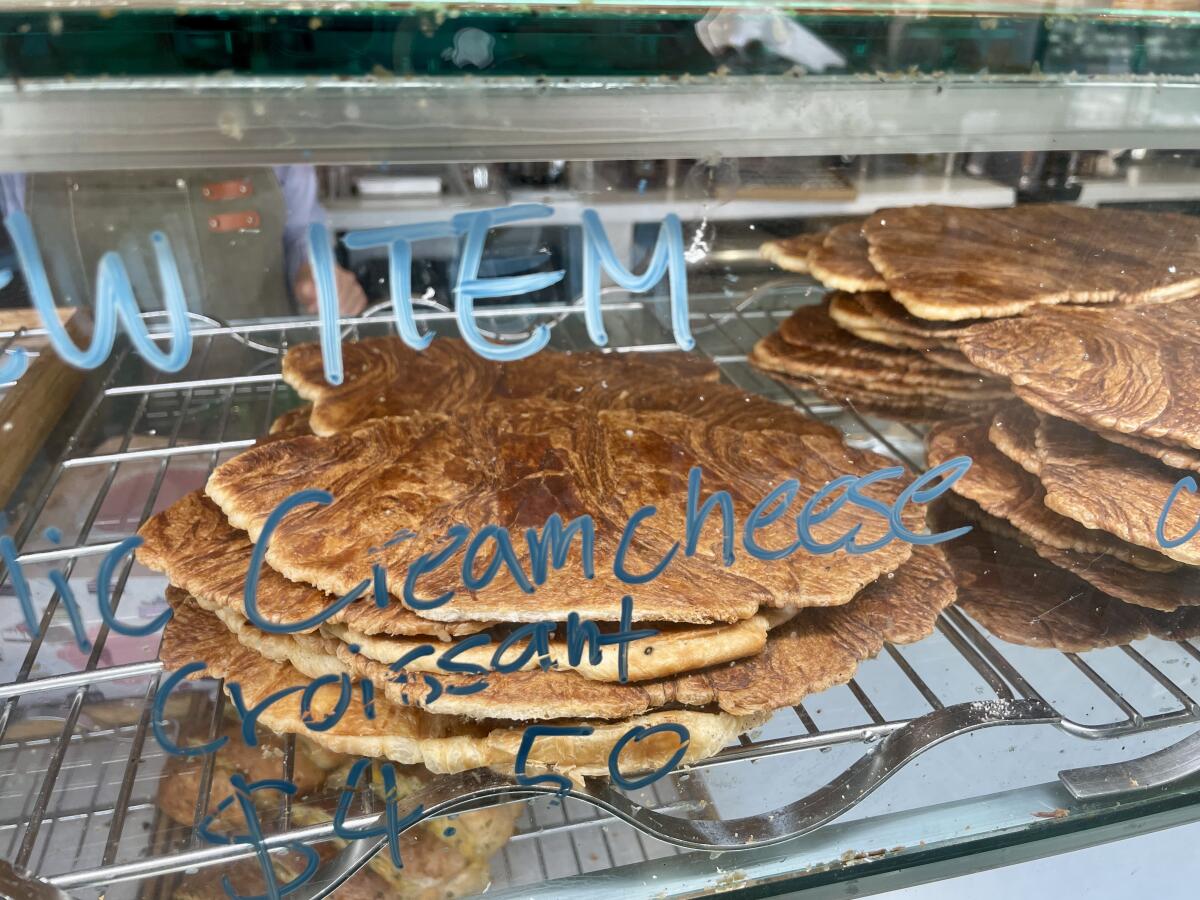 EW ITEM
lic Creamcheese C
Croissant
$4.50